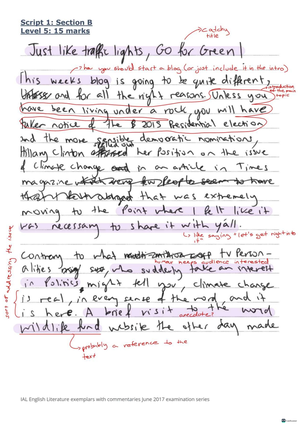 Script 1: Section B
Level 5: 15 marks
catchy
title
Just like traffic lights, Go for Green!
how you should start a blog (or just include it in the intro)
This weeks blog is going to be quite different,
and for all the right reasons. Unless you
introduction
of the main
topic
have been living under a rock, you will have
taken notice of the $ 2015 Presidential election
and the more possible democratic nominations,
Hillary Clinton spelled out her position on the issue
of climate change in an article in Times
magazine that was extremely
moving to the point where I felt like it
was necessary to share it with y'all.
like saying "let's get right into
it"
Contrary to what tv person-
keeps audience interested
alities say, who suddenly take an interest
in Politics, might tell you, climate change
is real, in every sense of the word, and it
is here. A brief visit to the word
anecdote?
wildlife fund website the other day made
sort of addressing the issue
probably a reference to the
text
IAL English Literature exemplars with commentaries June 2017 examination series